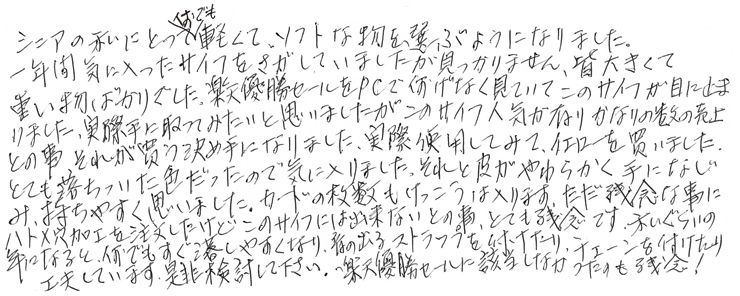 シニアの私にとって何でも軽くて、ソフトな物を選ぶようになりました。
一年間気に入ったサイフをさがしていましたが見つかりません、皆大きくて
重い物ばかりでした。楽天優勝セールをPCで何げなく見ていてこのサイフが目に止ま
りました、実際手に取ってみたいと思いましたがこのサイフ人気が有りかなりの数の売上
との事 それが買う決め手になりました、実際使用してみて、イエローを買いました。
とても落ちついた色だったので気に入りました。それと皮がやわらかく手になじ
み、持ちやすく思いました。カードの枚数もけっこうはいります。ただ残念な事に
ハトメ穴加工を注文したけどこのサイフには出来ないとの事、とても残念です、私ぐらいの
年になると、何でもすぐ落しやすくなり、音の出るストラップを付けたり、チェーンを付けたり
工夫しています。是非検討して下さい。楽天優勝セールに該当しなかったのも残念!